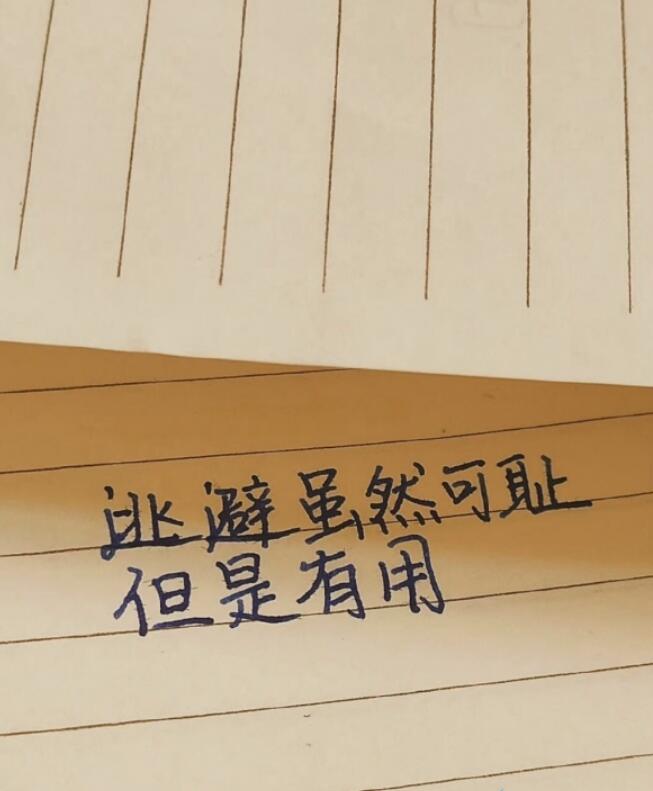 逃避虽然可耻
但是有用